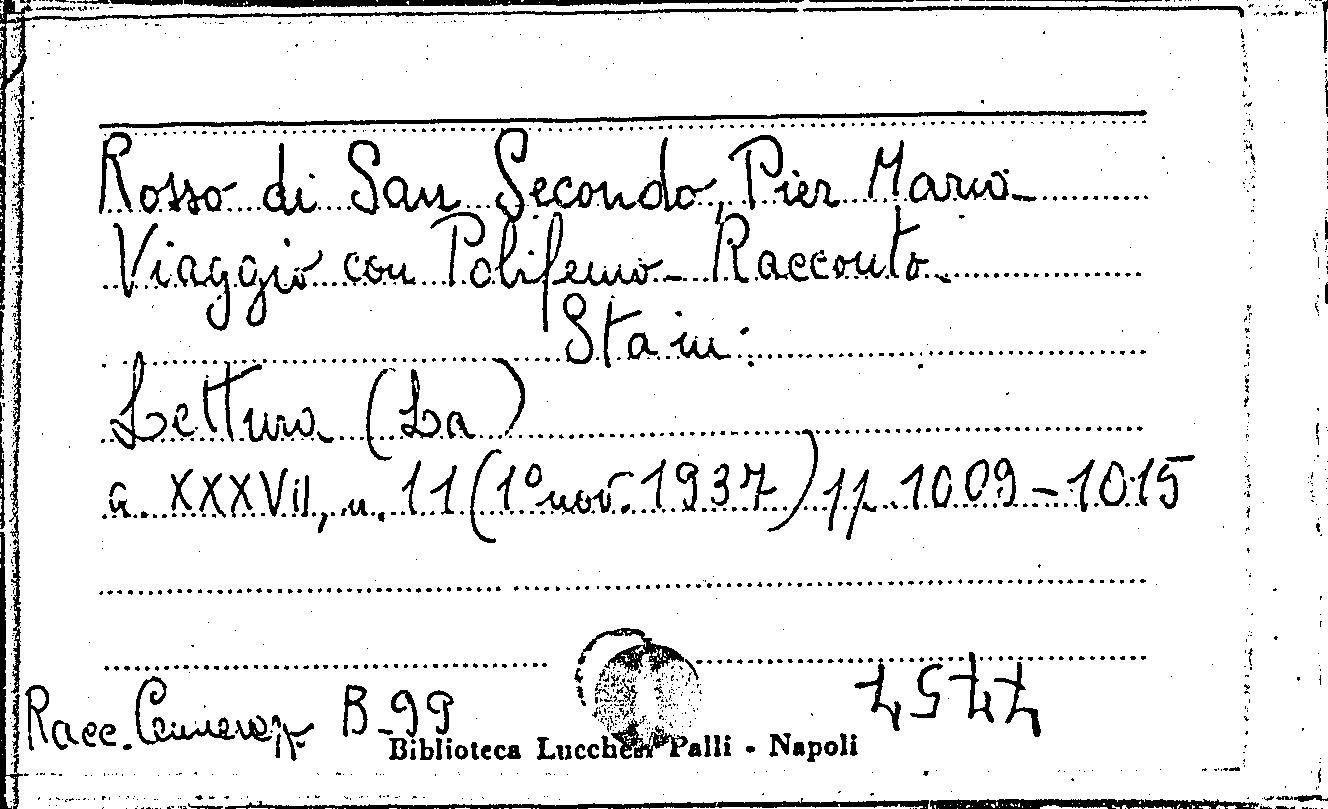 Rosso di San Secondo, Pier Maria -
Viaggio con Polifemo - Racconto -
Sta in:
Lettura (La)
a. XXXVII, n. 11 (1° nov. 1937) pp. 1009 - 1015
Racc. B - 99
Biblioteca Lucchesi Palli - Napoli